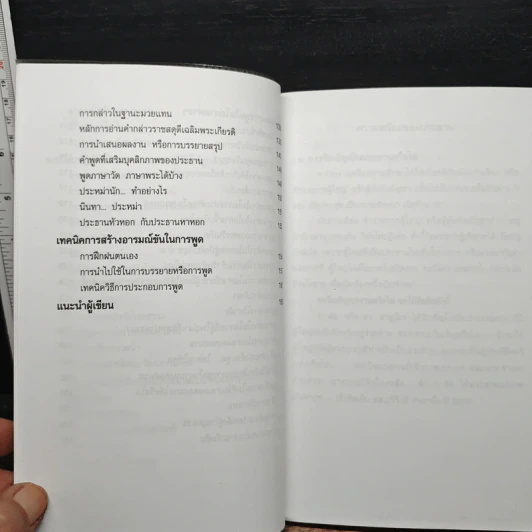 การกล่าวในฐานะมวยแทน
หลักการอ่านคำกล่าวราชสดุดีเฉลิมพระเกียรติ
การนำเสนอผลงาน หรือการบรรยายสรุป
คำพูดที่เสริมบุคลิกภาพของประธาน
พูดภาษาวัด ภาษาพระได้บ้าง
ประหม่านัก... ทำอย่างไร
นินทา... ประหม่า
ประธานหัวหอก กับประธานหาหอก
เทคนิคการสร้างอารมณ์ขันในการพูด
การฝึกฝนตนเอง
การนำไปใช้ในการบรรยายหรือการพูด
เทคนิควิธีการประกอบการพูด
แนะนำผู้เขียน